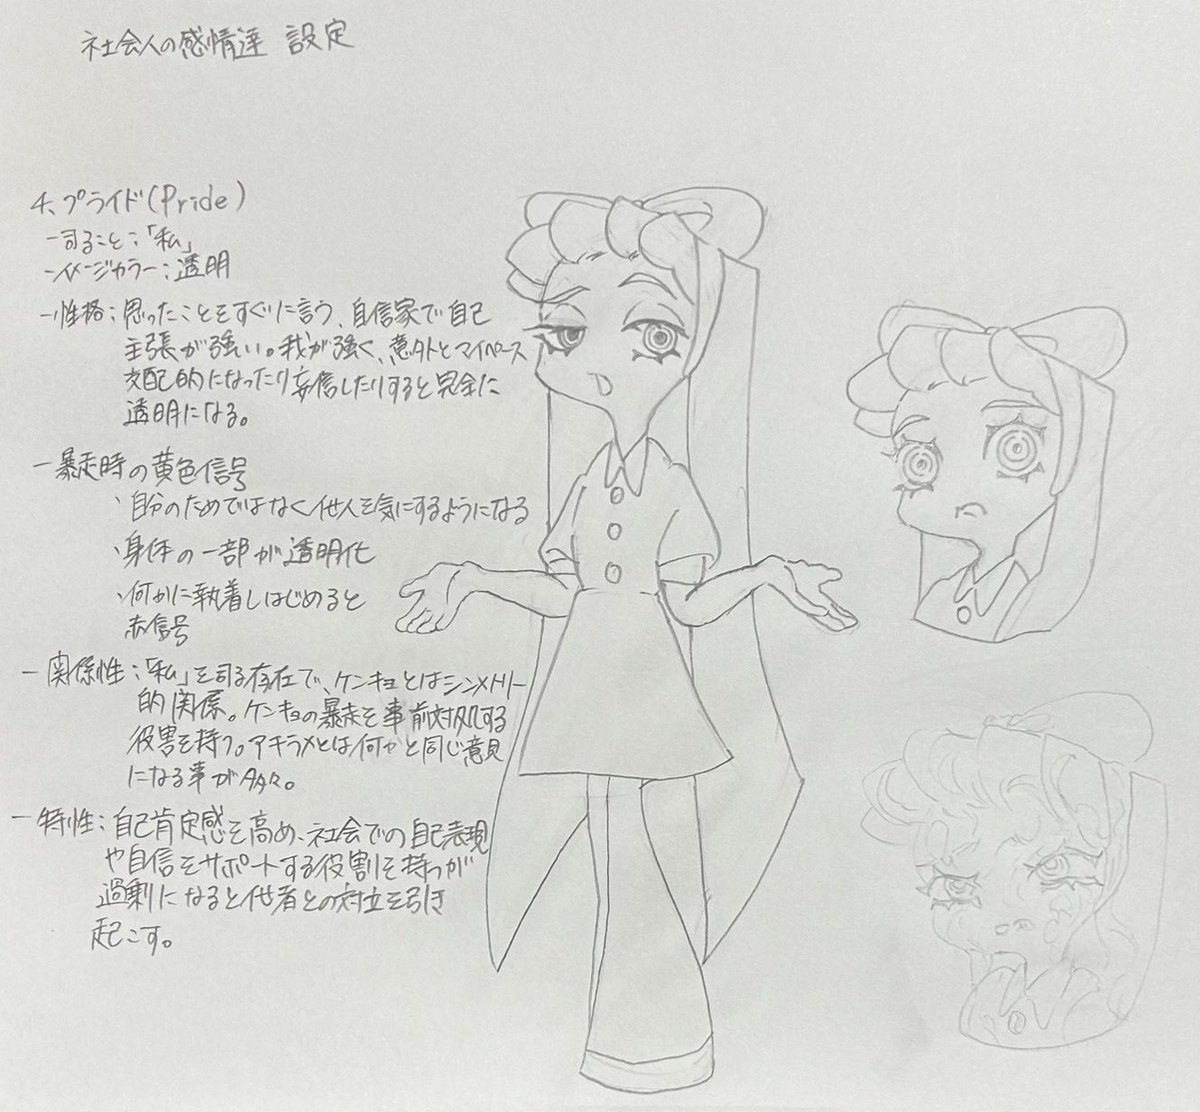 社会人の感情達 設定
4、プライド(Pride)
-司ること:「私」
-イメージカラー:透明
-性格:思ったことをすぐに言う、自信家で自己
主張が強い。我が強く、意外とマイペース
支配的になったり妄信したりすると完全に
透明になる。
-暴走時の黄色信号
・自分のためではなく他人を気にするようになる
・身体の一部が透明化
・何かに執着しはじめると
赤信号
-関係性:「私」を司る存在で、ケンキョとはシンメトリー
的関係。ケンキョの暴走を事前対処する
役害を持つ。アキラメとは何かと同じ意見
になる事が多々。
-特性:自己肯定感を高め、社会での自己表現
や自信をサポートする役割を持つが
過剰になると他者との対立を引き
起こす。